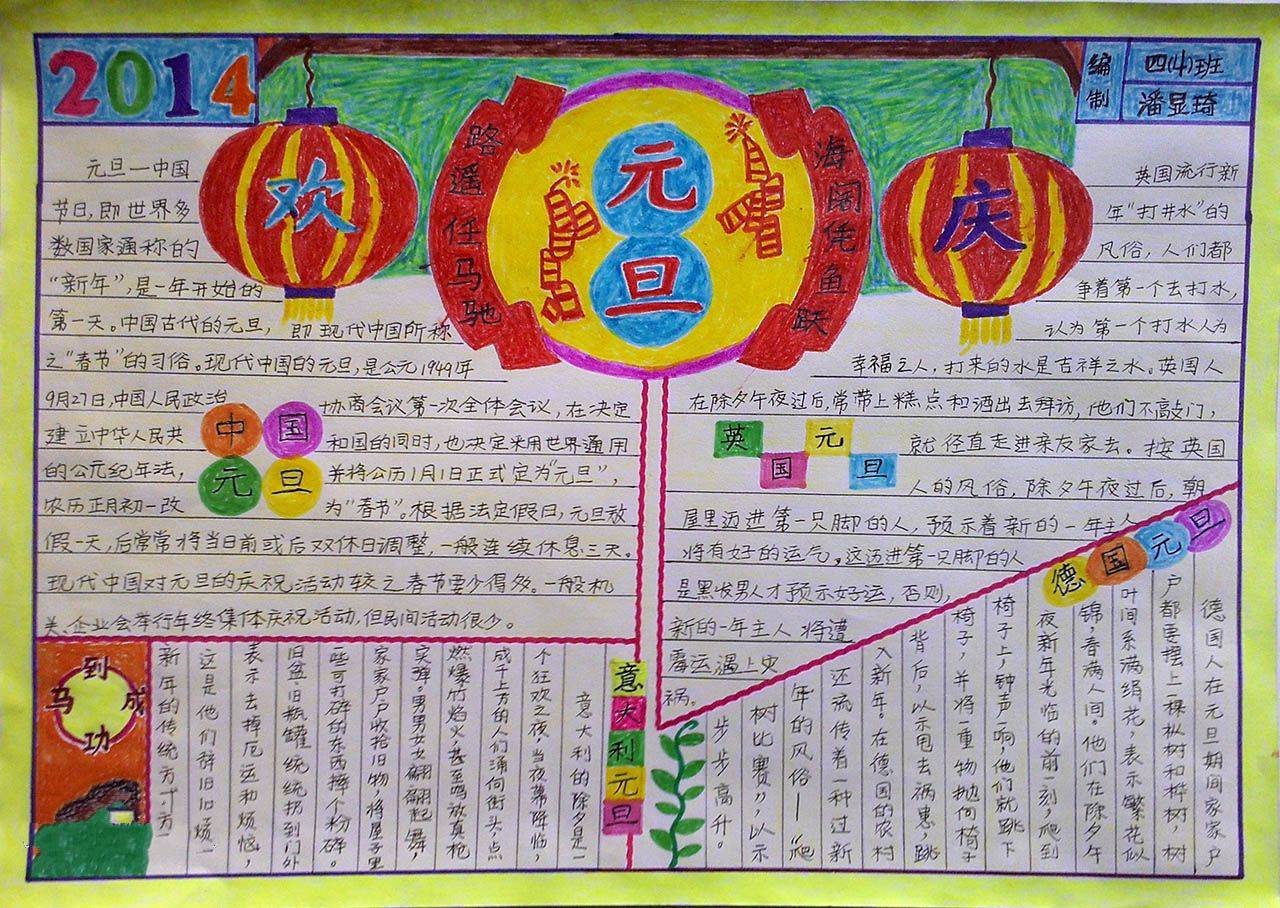 2014
编制
四(4)班
潘显琦
欢
庆
元旦
路遥任马驰
海阔凭鱼跃
元旦—中国
节日,即世界多
数国家通称的
“新年”,是一年开始的
第一天。中国古代的元旦,即现代中国所称
之“春节”的习俗。现代中国的元旦,是公元1949年
9月27日,中国人民政治协商会议第一次全体会议,在决定
建立中华人民共和国的同时,也决定采用世界通用
的公元纪年法,并将公历1月1日正式定为“元旦”,
农历正月初一改为“春节”。根据法定假日,元旦放
假一天,后常常将当日前或后双休日调整,一般连续休息三天。
现代中国对元旦的庆祝活动较之春节要少得多。一般机
关、企业会举行年终集体庆祝活动,但民间活动很少。
中国
元旦
英国元旦
英国流行新
年“打井水”的
风俗,人们都
争着第一个去打水,
认为第一个打水人为
幸福之人,打来的水是吉祥之水。英国人
在除夕午夜过后,常带上糕点和酒出去拜访,他们不敲门,
就径直走进亲友家去。按英国
人的风俗,除夕午夜过后,朝
屋里迈进第一只脚的人,预示着新的一年主人
将有好的运气。这迈进第一只脚的人
是黑发男人才预示好运,否则,
新的一年主人将遭
霉运遇上灾
祸。
德国元旦
德国人在元旦期间家家户
户都要摆上一棵枞树和桦树,树
叶间系满绢花,表示繁花似
锦,春满人间。他们在除夕午
夜新年光临的前一刻,爬到
椅子上,钟声一响,他们就跳下
椅子,并将一重物抛向椅子
背后,以示甩去祸患,跳
入新年。在德国的农村
还流传着一种过新
年的风俗——“爬
树比赛”,以示
步步高升。
意大利元旦
意大利的除夕是一
个狂欢之夜,当夜幕降临,
成千上万的人们涌向街头,点
燃爆竹焰火,甚至鸣放真枪
实弹。男男女女翩翩起舞,
家家户户收拾旧物,将屋子里
些可打碎的东西摔个粉碎。
旧盆、旧瓶罐统统扔到门外
表示去掉厄运和烦恼,
这是他们辞旧旧烦一
新年的传统方寸方
马到成功